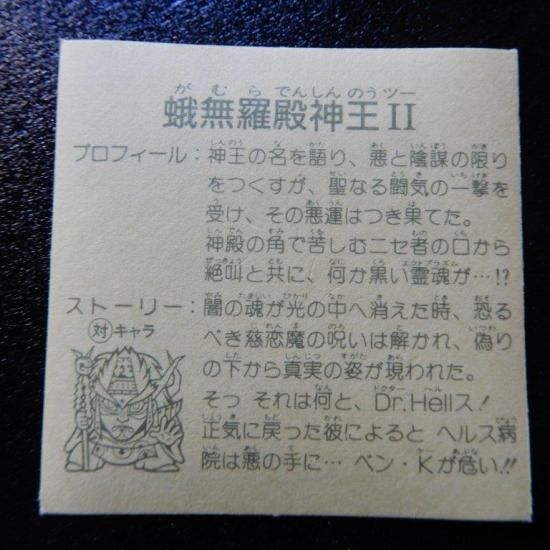 がむらでんしんのうツー
蛾無羅殿神王II
プロフィール：神王の名を語り、悪と陰謀の限り
をつくすが、聖なる闘気の一撃を
受け、その悪運はつき果てた。
神殿の角で苦しむニセ者の口から
絶叫と共に、何か黒い霊魂が…!?
ストーリー：闇の魂が光の中へ消えた時、恐る
対キャラ
べき慈恋魔の呪いは解かれ、偽り
の下から真実の姿が現われた。
そっ それは何と、Dr.Hellス！
正気に戻った彼によると ヘルス病
院は悪の手に… ベン・Kが危い!!